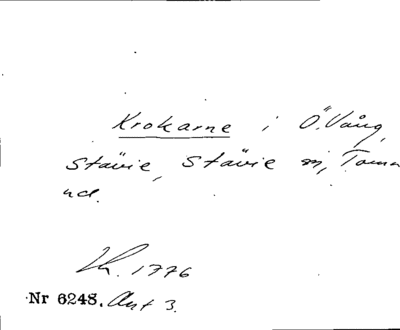 Krokarne i Ö. Vång,
Stävie, Stävie sn, Torna
hd.
Lk. 1776
Nr 6248. Akt 3.